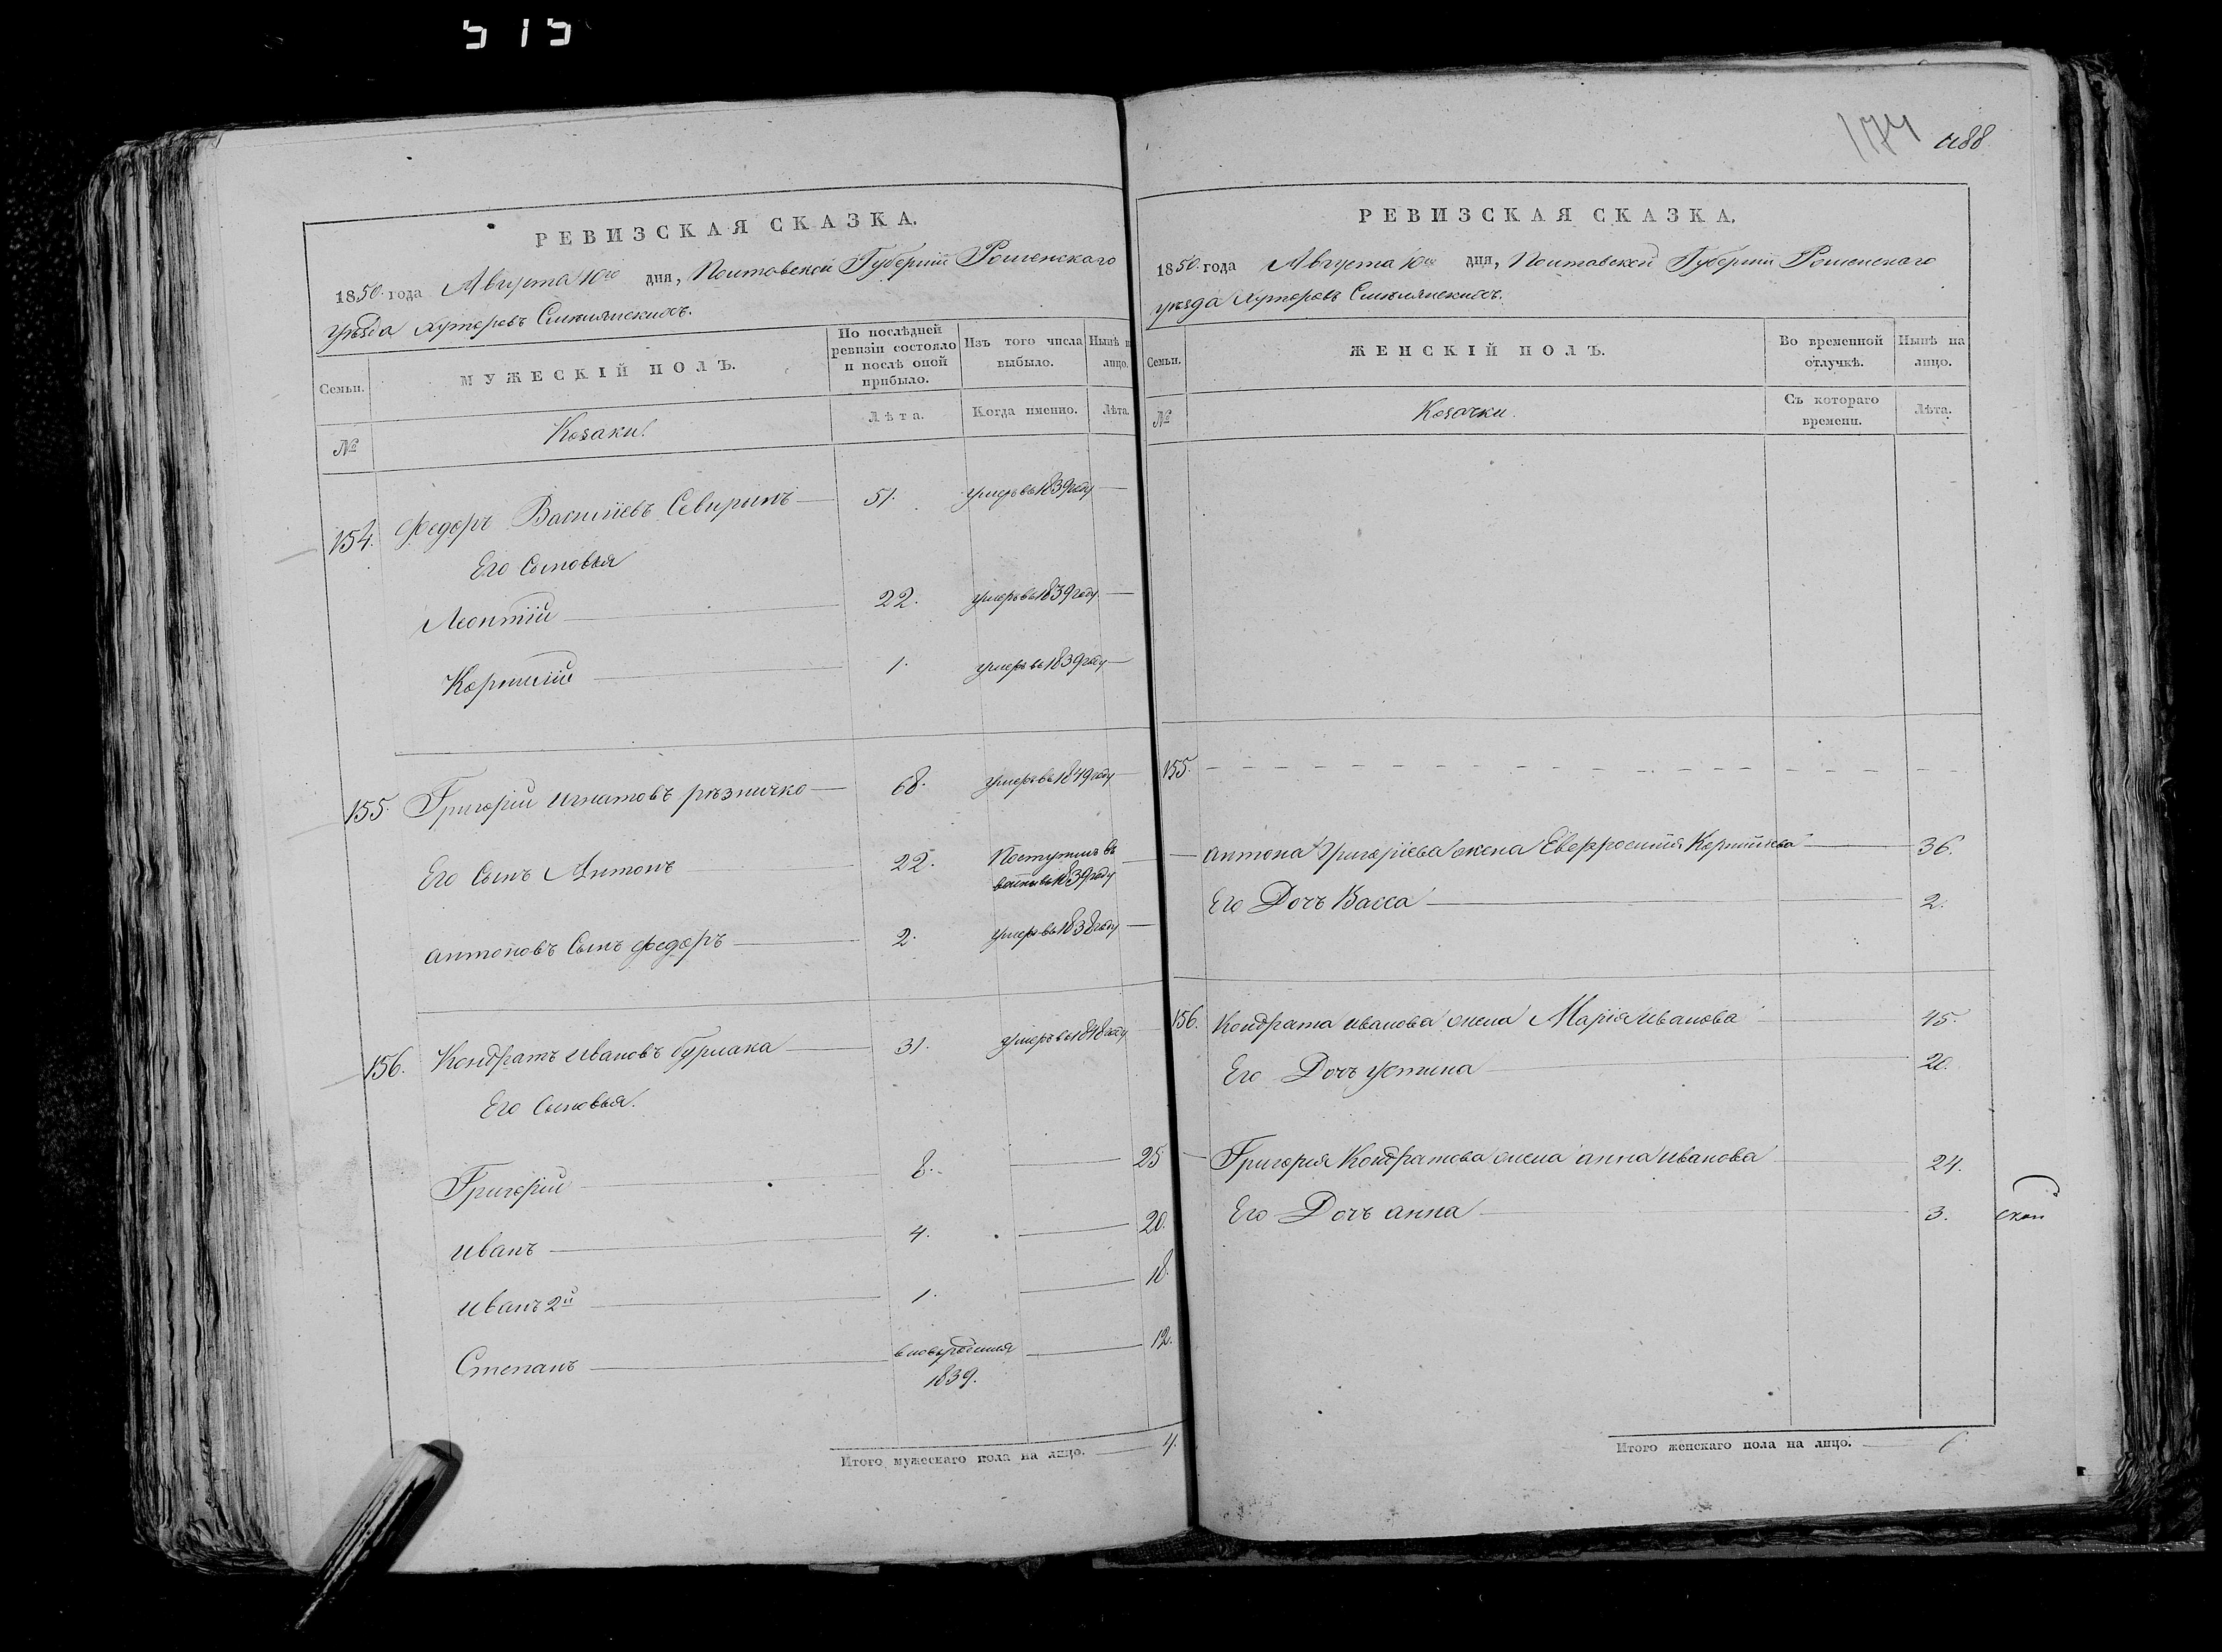 515
174
488
РЕВИЗСКАЯ СКАЗКА.
1850. года Августа 10го дня, Полтавской Губерніи Роменскаго
уѣзда Хуторовъ Смѣлянскихъ.
Семьи.
МУЖЕСКІЙ ПОЛЪ.
По послѣдней ревизіи состояло и послѣ оной прибыло.
Изъ того числа выбыло.
Нынѣ на лицо.
№
Козаки.
Лѣта.
Когда именно.
Лѣта.
154. Федоръ Василіевъ 51. умеръ въ 1839 году
Его Сыновья
Леонтій 22. умеръ въ 1839 году
Корнилій 1. умеръ въ 1839 году
155. Григорій игнатовъ рѣзничко 68. умеръ въ 1849 году
Его Сынъ Антонъ 22. Поступилъ въ 1839 году
антоновъ Сынъ федоръ 2. умеръ въ 1838 году
156. Кондратъ ивановъ бурлака 31. умеръ въ 1848 году
Его Сыновья.
Григорій 8. 25
иванъ 4. 20.
иванъ 2й 1. 18.
Степанъ 1839. 12.
Итого мужескаго пола на лицо. 4.
РЕВИЗСКАЯ СКАЗКА.
1850. года Августа 10го дня, Полтавской Губерніи Роменскаго
уѣзда Хуторовъ Смѣлянскихъ.
Семьи.
ЖЕНСКІЙ ПОЛЪ.
Во временной отлучкѣ.
Нынѣ на лицо.
№
Козачки.
Съ котораго времени.
Лѣта.
155.
антона Григоріева жена Евфросинія Корнилова 36.
Его Дочь Васса 2.
156. Кондрата иванова жена Марія иванова 45.
Его Дочь устина 20.
Григорія Кондратова жена анна иванова 24.
Его Дочь анна 3.
Итого женскаго пола на лицо. 6.